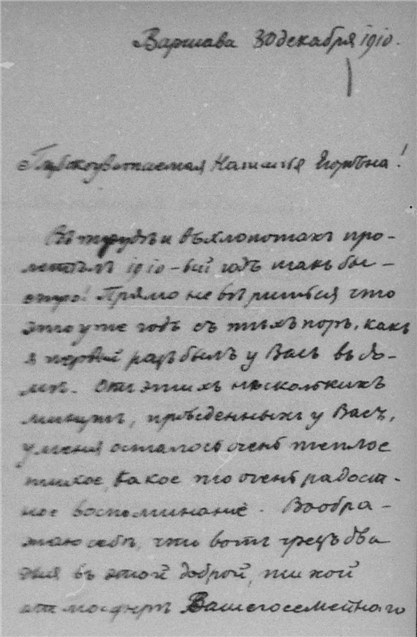 Варшава 30 декабря 1910.
Глубокоуважаемая Наталья Егоровна!
Въ трудѣ и въ хлопотахъ про-
летѣлъ 1910-ый годъ такъ бы-
стро! Прямо не вѣрится что
это уже годъ съ тѣхъ поръ, какъ
я первый разъ былъ у Васъ въ до-
мѣ. Отъ этихъ нѣсколькихъ
минутъ, проведенныхъ у Васъ,
у меня осталось очень теплое
тихое, какое то очень радост-
ное воспоминание. Вообра-
жаю себѣ, что вотъ черезъ два
дня въ этой доброй, тихой
атмосферѣ Вашего семейнаго